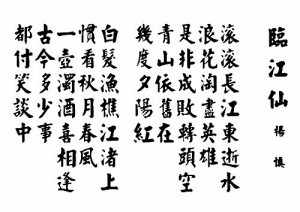 臨江仙 楊慎
滾滾長江東逝水
浪花淘盡英雄
是非成敗轉頭空
青山依舊在
幾度夕陽紅
白髮漁樵江渚上
慣看秋月春風
一壺濁酒喜相逢
古今多少事
都付笑談中